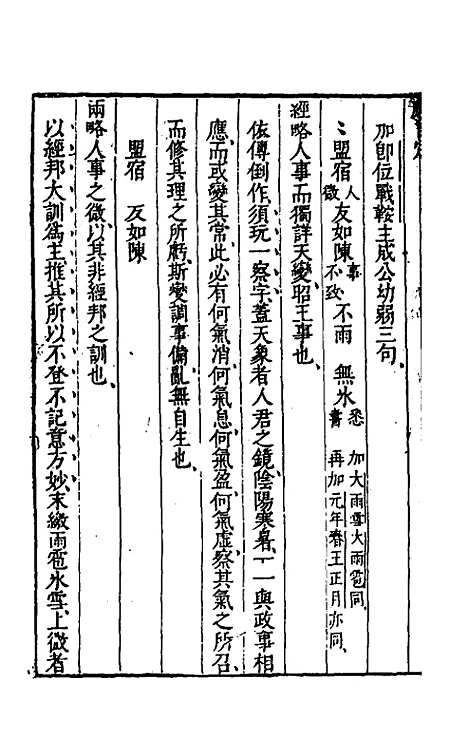 加卽位戰鞍主成公幼弱三句
盟宿人微友如陳事不致不雨 無氷悉書 加大雨雪大雨雹同再加元年春王正月亦同
經略人事而獨詳天變昭王事也
依傳倒作須玩一察字蓋天象者人君之鏡陰陽寒暑一一與政事相
應而或變其常此必有何氣消何氣息何氣盈何氣虛察其氣之所召
而修其理之所虧斯變調事備亂無自生也
盟宿 友如陳
兩略人事之微以其非經邦之訓也
以經邦大訓爲主推其所以不登不記意方妙末繳雨雹氷雪上微者